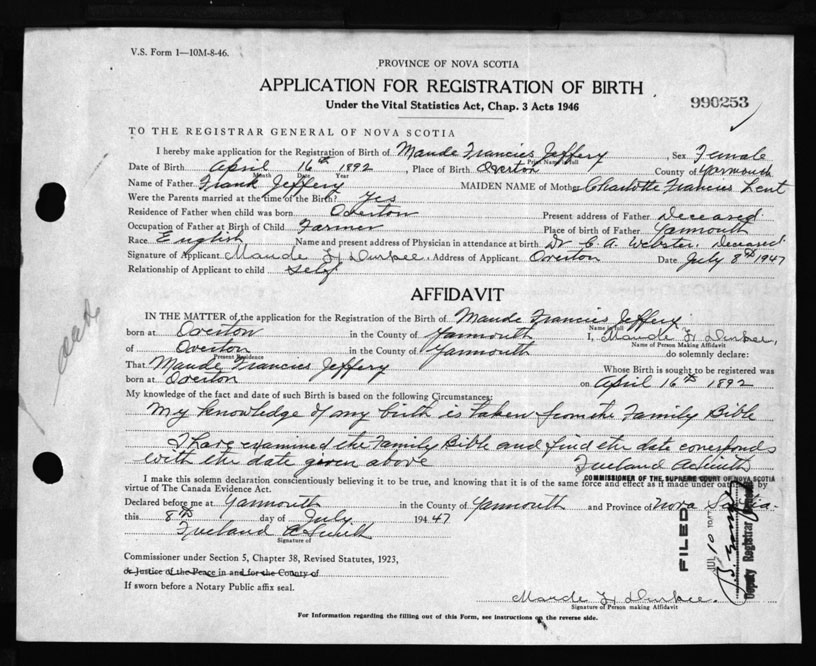 V.S. Form 1—10M-8-46.
PROVINCE OF NOVA SCOTIA
APPLICATION FOR REGISTRATION OF BIRTH
Under the Vital Statistics Act, Chap. 3 Acts 1946
990253
TO THE REGISTRAR GENERAL OF NOVA SCOTIA
I hereby make application for the Registration of Birth of Maude Francies Jeffery, Sex Female
Print Name in full
Date of Birth April 16th 1892, Place of Birth Overton County of Yarmouth
Month Date Year
Name of Father Frank Jeffery MAIDEN NAME of Mother Charlotte Francies Lent
Were the Parents married at the time of the Birth? Yes
Residence of Father when child was born Overton Present address of Father Deceased
Occupation of Father at Birth of Child Farmer Place of birth of Father Yarmouth
Race English Name and present address of Physician in attendance at birth Dr C. A. Webster. Deceased
Signature of Applicant Maude F. Durkee. Address of Applicant Overton Date July 8th 1947
Relationship of Applicant to child Self
AFFIDAVIT
IN THE MATTER of the application for the Registration of the Birth of Maude Francies Jeffery
Name in full
born at Overton in the County of Yarmouth I, Maude F. Durkee,
Name of Person Making Affidavit
of Overton in the County of Yarmouth do solemnly declare:
Present Residence
That Maude Francies Jeffery Whose Birth is sought to be registered was
born at Overton on April 16th 1892
My knowledge of the fact and date of such Birth is based on the following Circumstances:
My knowledge of my birth is taken from the Family Bible
I have examined the Family Bible and find the date corresponds
with the date given above
COMMISSIONER OF THE SUPREME COURT OF NOVA SCOTIA
I make this solemn declaration conscientiously believing it to be true, and knowing that it is of the same force and effect as if made under oath by
virtue of The Canada Evidence Act.
Declared before me at Yarmouth in the County of Yarmouth and Province of Nova Scotia.
this 8th day of July 194 47
Signature of
FILED
JUL 10 1947
Deputy Registrar General
Commissioner under Section 5, Chapter 38, Revised Statutes, 1923,
or Justice of the Peace in and for the County of
If sworn before a Notary Public affix seal.
Maude F. Durkee.
Signature of Person making Affidavit
For Information regarding the filling out of this Form, see instructions on the reverse side.